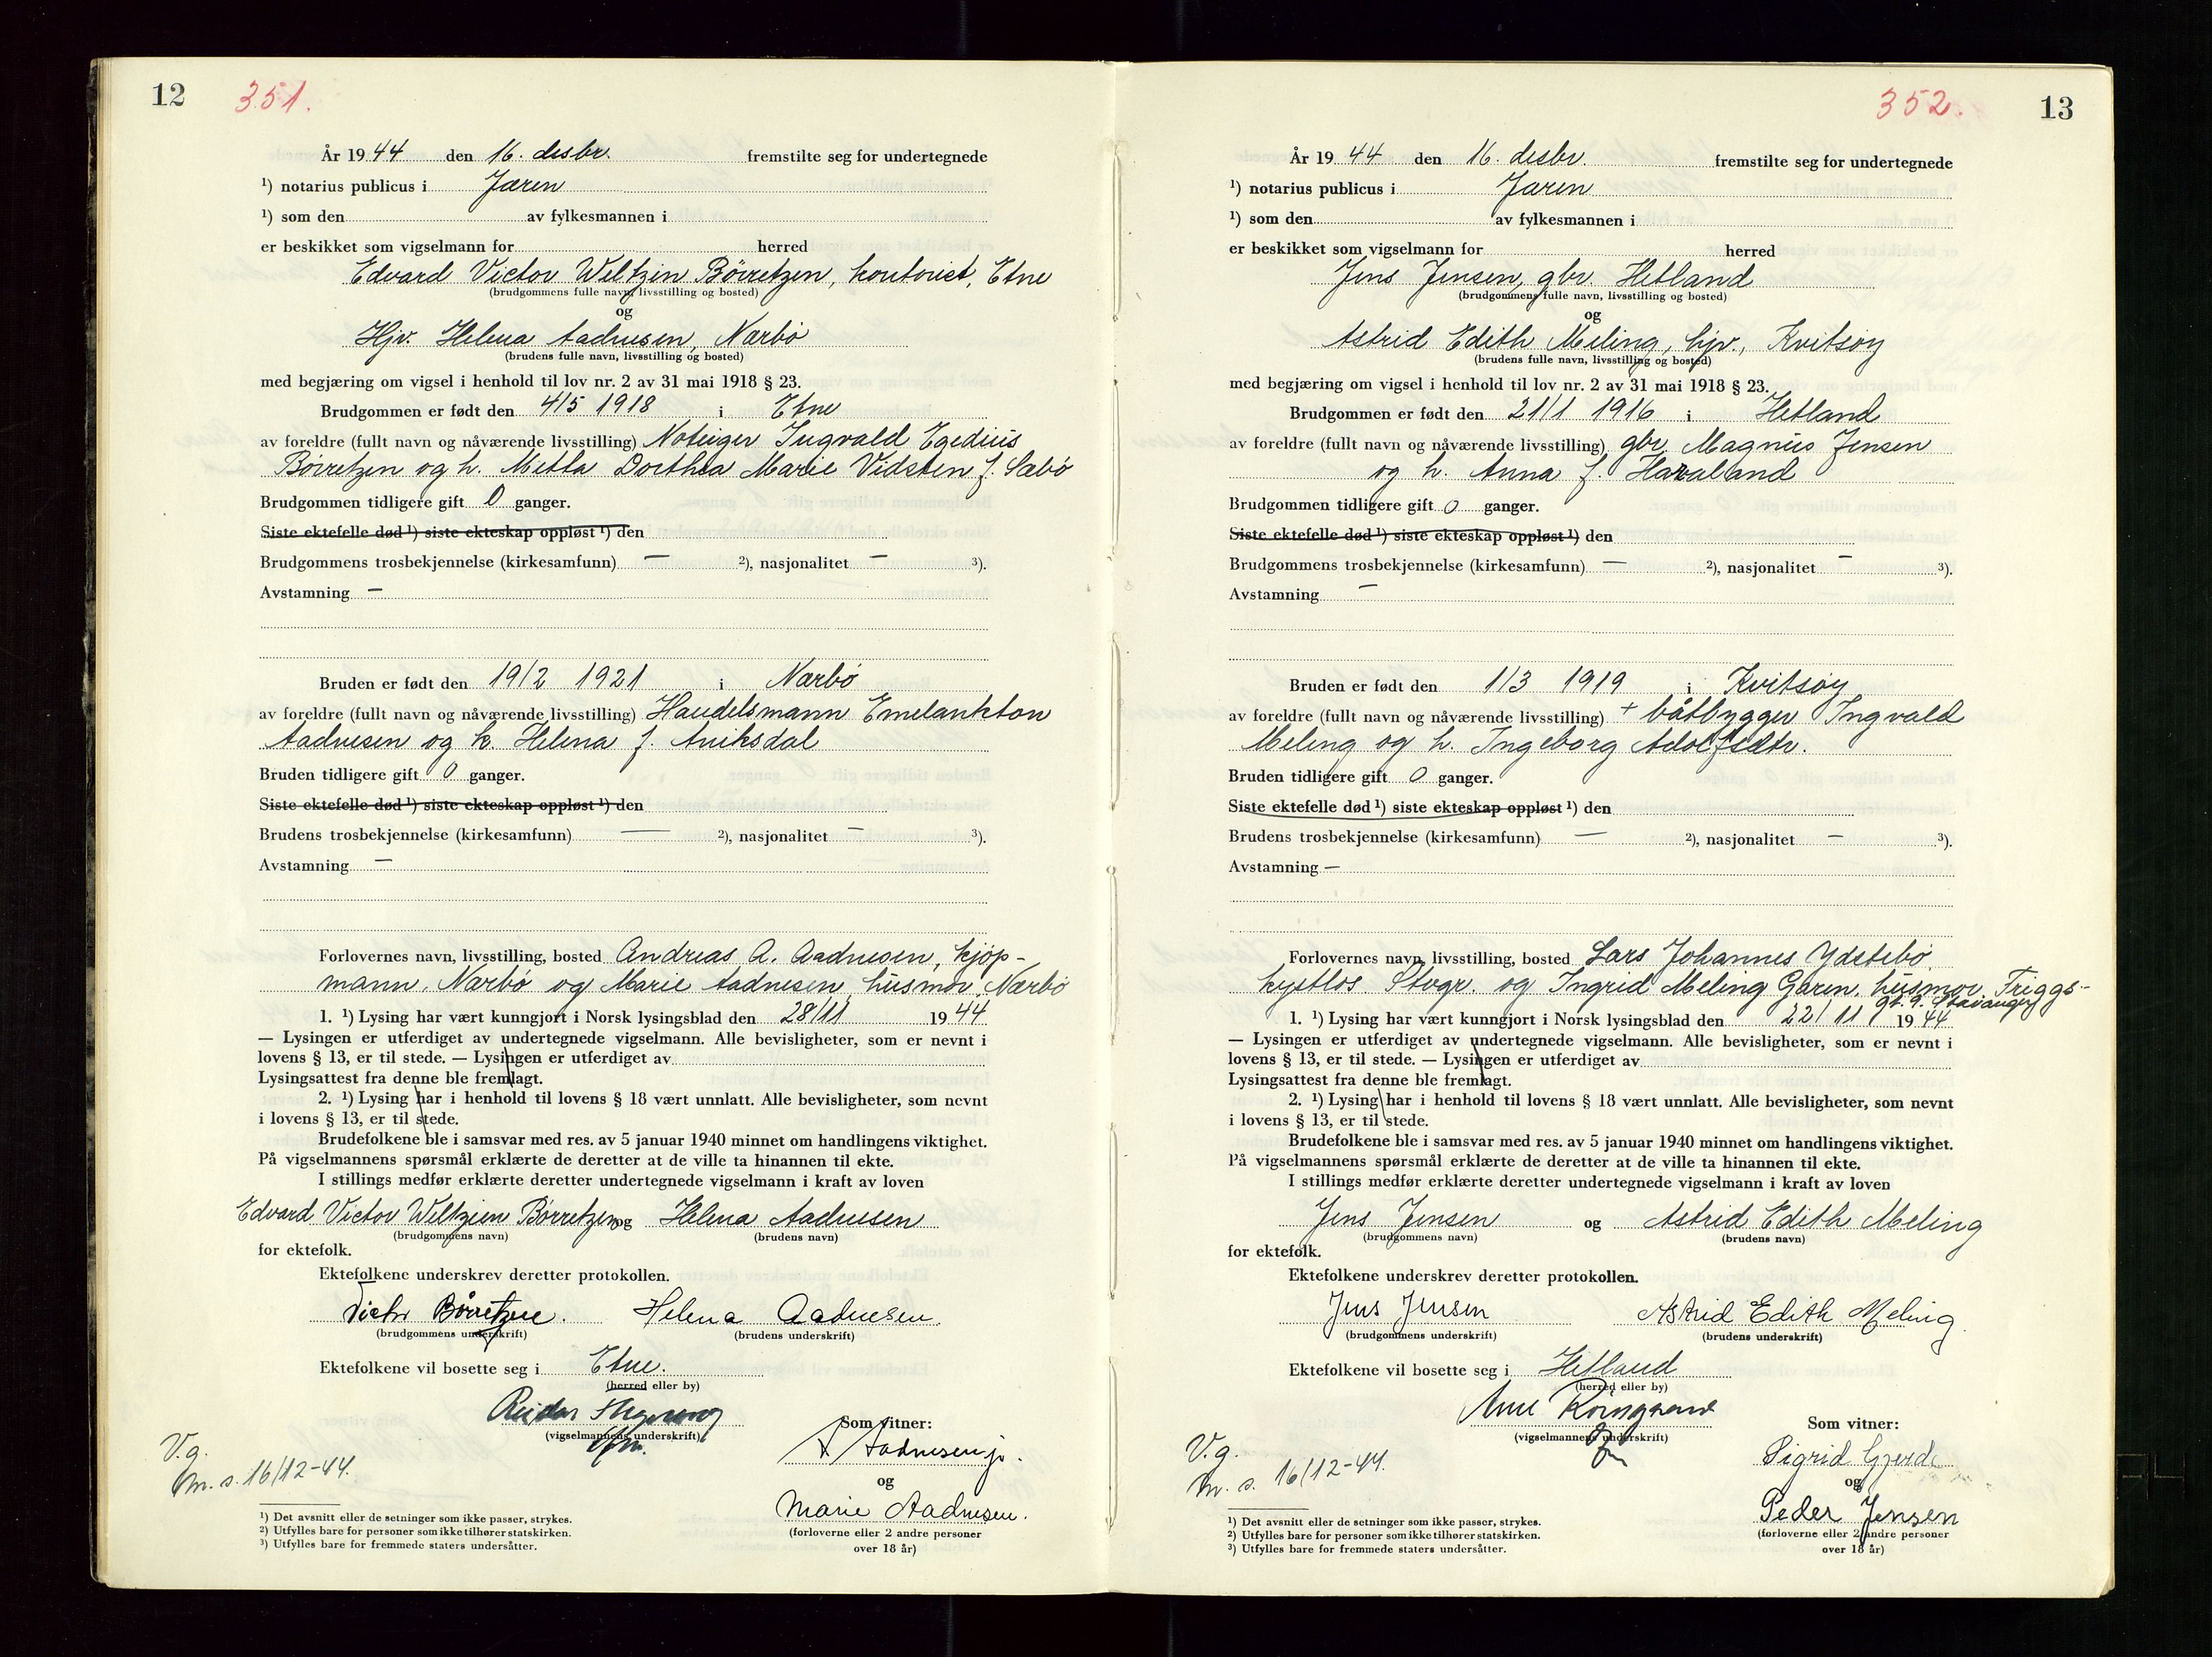 12 351.
År 1944 den 16. desbr. fremstilte seg for undertegnede
¹) notarius publicus i Jæren
¹) som den av fylkesmannen i
er beskikket som vigselmann for herred
Edvard Victor Weltzin Börretzen, kontorist, Etne
(brudgommens fulle navn, livsstilling og bosted)
og
Hjv. Helena Aadnesen, Nærbö
(brudens fulle navn, livsstilling og bosted)
med begjæring om vigsel i henhold til lov nr. 2 av 31 mai 1918 § 23.
Brudgommen er født den 4/5 1918 i Etne
av foreldre (fullt navn og nåværende livsstilling) Ingvald Egedius
Börretzen og h. Metta Dorthea Marie Vidsten f. Sæbö
Brudgommen tidligere gift 0 ganger.
Siste ektefelle død ¹) siste ekteskap oppløst ¹) den
Brudgommens trosbekjennelse (kirkesamfunn) — ²), nasjonalitet — ³).
Avstamning —
Bruden er født den 19/2 1921 i Nærbö
av foreldre (fullt navn og nåværende livsstilling) Handelsmann Emelankton
Aadnesen og h. Helena f. Aniksdal
Bruden tidligere gift 0 ganger.
Siste ektefelle død ¹) siste ekteskap oppløst ¹) den
Brudens trosbekjennelse (kirkesamfunn) — ²), nasjonalitet — ³).
Avstamning —
Forlovernes navn, livsstilling, bosted Andreas A. Aadnesen, kjöp-
mann, Nærbö og Marie Aadnesen, husmor, Nærbö
1. ¹) Lysing har vært kunngjort i Norsk lysingsblad den 28/11 1944
— Lysingen er utferdiget av undertegnede vigselmann. Alle bevisligheter, som er nevnt i
lovens § 13, er til stede. — Lysingen er utferdiget av
Lysingsattest fra denne ble fremlagt.
2. ¹) Lysing har i henhold til lovens § 18 vært unnlatt. Alle bevisligheter, som nevnt
i lovens § 13, er til stede.
Brudefolkene ble i samsvar med res. av 5 januar 1940 minnet om handlingens viktighet.
På vigselmannens spørsmål erklærte de deretter at de ville ta hinannen til ekte.
I stillings medfør erklærte deretter undertegnede vigselmann i kraft av loven
Edvard Victor Weltzien Börretzen og Helena Aadnesen
(brudgommens navn) (brudens navn)
for ektefolk.
Ektefolkene underskrev deretter protokollen.
Victor Börretzen. Helena Aadnesen.
(brudgommens underskrift) (brudens underskrift)
Ektefolkene vil bosette seg i Etne.
(herred eller by)
Reidar
(vigselmannens underskrift) Som vitner:
V.g. A Aadnesen jr.
m. s. 16/12-44. og
Marie Aadnesen.
(forloverne eller 2 andre personer
over 18 år)
¹) Det avsnitt eller de setninger som ikke passer, strykes.
²) Utfylles bare for personer som ikke tilhører statskirken.
³) Utfylles bare for fremmede staters undersåtter.
352. 13
År 1944 den 16. desbr. fremstilte seg for undertegnede
¹) notarius publicus i Jæren
¹) som den av fylkesmannen i
er beskikket som vigselmann for herred
Jens Jensen, gbr. Hetland
(brudgommens fulle navn, livsstilling og bosted)
og
Astrid Edith Meling, hjv., Kvitsöy
(brudens fulle navn, livsstilling og bosted)
med begjæring om vigsel i henhold til lov nr. 2 av 31 mai 1918 § 23.
Brudgommen er født den 21/1 1916 i Hetland
av foreldre (fullt navn og nåværende livsstilling) gbr. Magnus Jensen
og h. Anna f. Haraland
Brudgommen tidligere gift 0 ganger.
Siste ektefelle død ¹) siste ekteskap oppløst ¹) den
Brudgommens trosbekjennelse (kirkesamfunn) — ²), nasjonalitet — ³).
Avstamning —
Bruden er født den 1/3 1919 i Kvitsöy
av foreldre (fullt navn og nåværende livsstilling) + båtbygger Ingvald
Meling og h. Ingeborg Adolfsdtr.
Bruden tidligere gift 0 ganger.
Siste ektefelle død ¹) siste ekteskap oppløst ¹) den
Brudens trosbekjennelse (kirkesamfunn) — ²), nasjonalitet — ³).
Avstamning —
Forlovernes navn, livsstilling, bosted Lars Johannes Ydstebö,
kystlos. Stvgr. og Ingrid Meling Garen, husmor, Friggs-
gt. 9. Stavanger
1. ¹) Lysing har vært kunngjort i Norsk lysingsblad den 22/11 1944
— Lysingen er utferdiget av undertegnede vigselmann. Alle bevisligheter, som er nevnt i
lovens § 13, er til stede. — Lysingen er utferdiget av
Lysingsattest fra denne ble fremlagt.
2. ¹) Lysing har i henhold til lovens § 18 vært unnlatt. Alle bevisligheter, som nevnt
i lovens § 13, er til stede.
Brudefolkene ble i samsvar med res. av 5 januar 1940 minnet om handlingens viktighet.
På vigselmannens spørsmål erklærte de deretter at de ville ta hinannen til ekte.
I stillings medfør erklærte deretter undertegnede vigselmann i kraft av loven
Jens Jensen og Astrid Edith Meling
(brudgommens navn) (brudens navn)
for ektefolk.
Ektefolkene underskrev deretter protokollen.
Jens Jensen Astrid Edith Meling.
(brudgommens underskrift) (brudens underskrift)
Ektefolkene vil bosette seg i Hetland
(herred eller by)
(vigselmannens underskrift) Som vitner:
V.g. Sigrid Gjerde
m. s. 16/12-44. og
Peder Jensen
(forloverne eller 2 andre personer
over 18 år)
¹) Det avsnitt eller de setninger som ikke passer, strykes.
²) Utfylles bare for personer som ikke tilhører statskirken.
³) Utfylles bare for fremmede staters undersåtter.